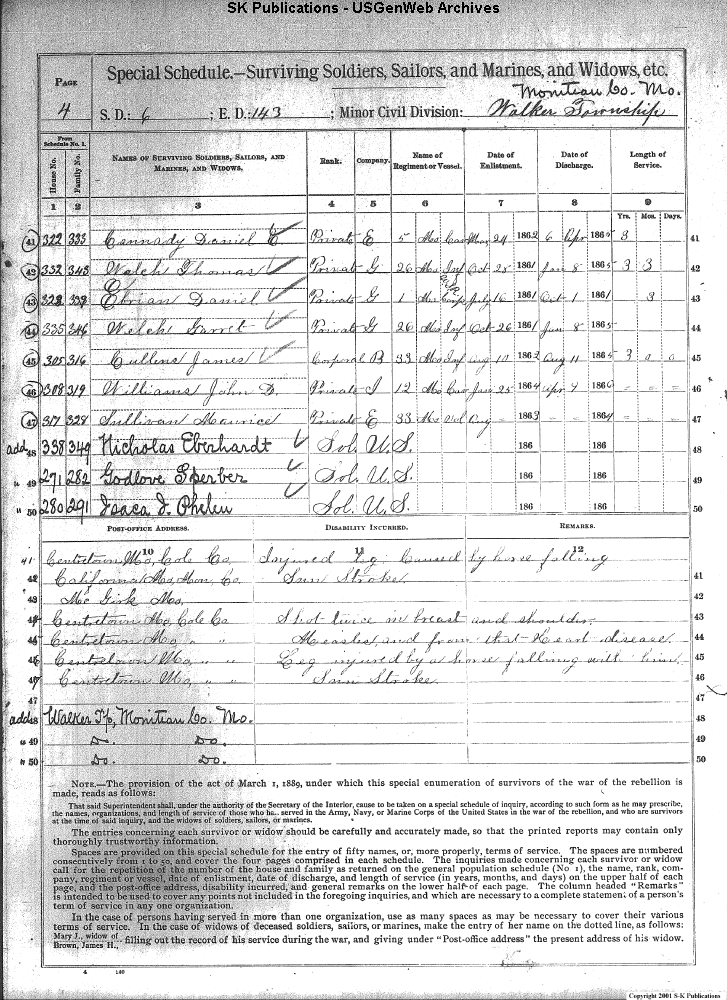 SK Publications - USGenWeb Archives
PAGE
4
Special Schedule.—Surviving Soldiers, Sailors, and Marines, and Widows, etc.
Monitiau Co. Mo.
S. D.: 6 ; E. D.: 143 ; Minor Civil Division: Walker Township
From Schedule No. 1.
House No. Family No. NAMES OF SURVIVING SOLDIERS, SAILORS, AND MARINES, AND WIDOWS. Rank. Company. Name of Regiment or Vessel. Date of Enlistment. Date of Discharge. Length of Service.
1 2 3 4 5 6 7 8 9
Yrs. Mos. Days.
41 322 333 Cennady Daniel C Private E 5 Mo Cav Mar 24 1862 6 Apr 1865 3 41
42 332 343 Welch Thomas Private G 26 Mo Inf Oct 25 1861 Jan 8 1865 3 3 42
43 328 339 Obrian Daniel Private G 1 July 16 1861 Oct 1 1861 3 43
44 335 346 Welch Garret Private G 26 Mo Inf Oct 26 1861 Jan 8 1865 44
45 305 316 Cullens James Corporal B 33 Mo Inf Aug 10 1862 Aug 11 1865 3 0 0 45
46 308 319 Williams John D. Private I 12 Mo Cav Jan 25 1864 Apr 9 1866 - - - 46
47 317 328 Sullivan Maurice Private E 33 Mo Vol Aug - 1863 - - 1864 - - - 47
add 48 338 349 Nicholas Eberhardt Sol. U. S. 186 186 48
" 49 271 282 Godlove Sperber Sol. U. S. 186 186 49
" 50 280 291 Isaca J. Phelen Sol. U. S. 186 186 50
POST-OFFICE ADDRESS. DISABILITY INCURRED. REMARKS.
10 11 12
41 Centretown Mo, Cole Co Injured Leg Caused by horse falling
42 California Mo, Mon. Co. Sun Stroke 41
43 Mc Girk Mo, 42
44 Centretown Mo, Cole Co Shot twice in breast and shoulder. 43
44 Centretown Mo, " " Measles, and from that Heart disease. 44
45 Centretown Mo, " " Leg injured by a horse falling with him. 45
46 Centretown Mo, " " Sun Stroke. 46
47 47
add 48 Walker Tp, Monitiau Co. Mo. 48
" 49 Do. Do. 49
" 50 Do. Do. 50
NOTE.—The provision of the act of March 1, 1889, under which this special enumeration of survivors of the war of the rebellion is
made, reads as follows:
That said Superintendent shall, under the authority of the Secretary of the Interior, cause to be taken on a special schedule of inquiry, according to such form as he may prescribe,
the names, organizations, and length of service of those who ha.. served in the Army, Navy, or Marine Corps of the United States in the war of the rebellion, and who are survivors
at the time of said inquiry, and the widows of soldiers, sailors, or marines.
The entries concerning each survivor or widow should be carefully and accurately made, so that the printed reports may contain only
thoroughly trustworthy information.
Spaces are provided on this special schedule for the entry of fifty names, or, more properly, terms of service. The spaces are numbered
consecutively from 1 to 50, and cover the four pages comprised in each schedule. The inquiries made concerning each survivor or widow
call for the repetition of the number of the house and family as returned on the general population schedule (No. 1), the name, rank, com-
pany, regiment or vessel, date of enlistment, date of discharge, and length of service (in years, months, and days) on the upper half of each
page, and the post-office address, disability incurred, and general remarks on the lower half of each page. The column headed "Remarks"
is intended to be used to cover any points not included in the foregoing inquiries, and which are necessary to a complete statement of a person's
term of service in any one organization.
In the case of persons having served in more than one organization, use as many spaces as may be necessary to cover their various
terms of service. In the case of widows of deceased soldiers, sailors, or marines, make the entry of her name on the dotted line, as follows:
Mary J., widow of
Brown, James H., filling out the record of his service during the war, and giving under "Post-office address" the present address of his widow.
Copyright 2001 S-K Publications